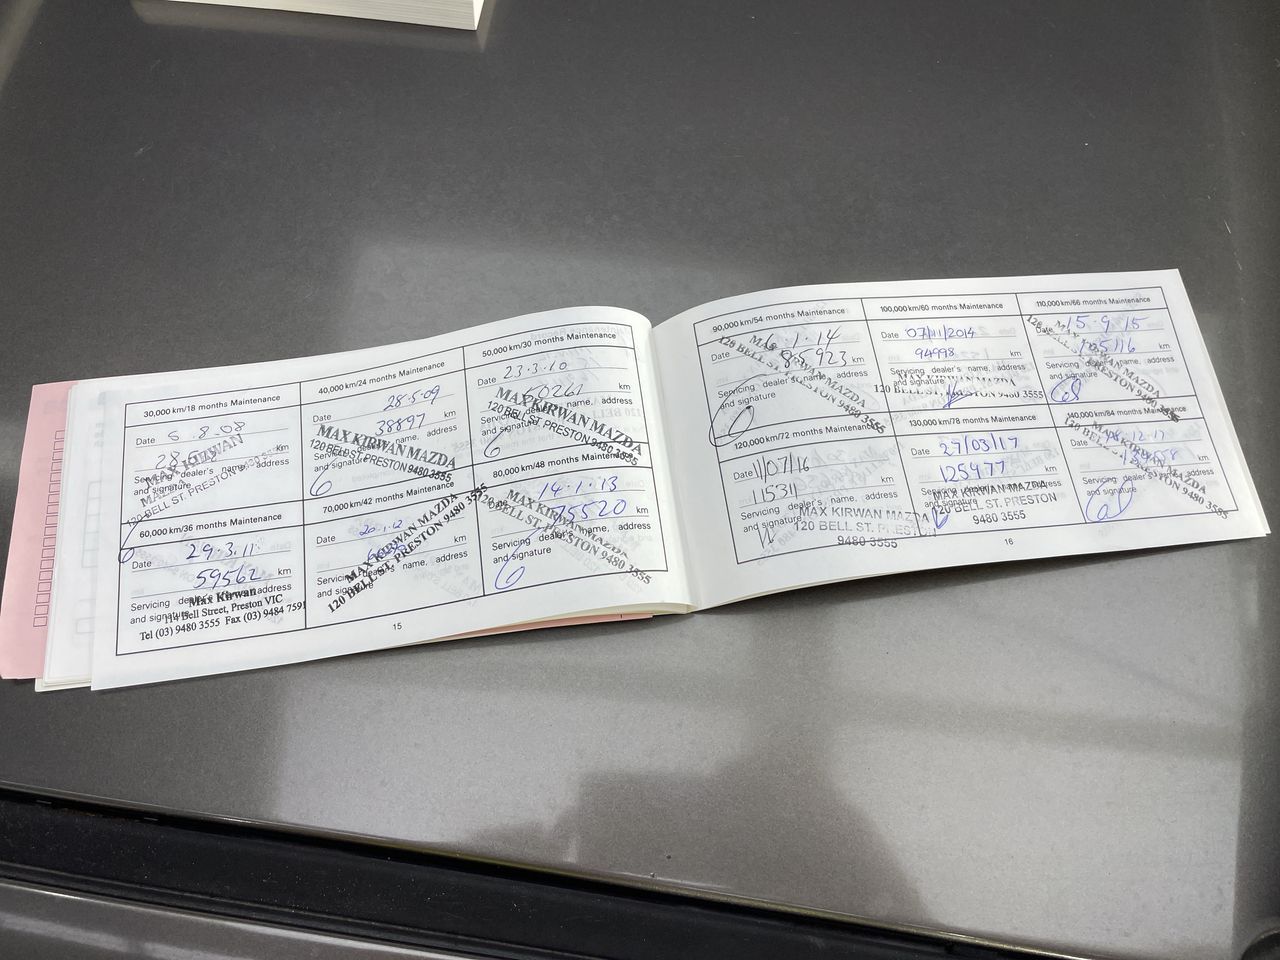 30,000 km/18 months Maintenance
Date 5.8.08
Servicing dealer's name,
and signature
MAX KIRWAN
120 BELL ST. PRESTON
40,000 km/24 months Maintenance
Date 28.5.09
38897 km
Servicing dealer's name, address
and signature
MAX KIRWAN MAZDA
120 BELL ST. PRESTON 9480 3555
50,000 km/30 months Maintenance
Date 23.3.10
km
Servicing dealer's name, address
and signature
MAX KIRWAN MAZDA
120 BELL ST. PRESTON 9480 3555
60,000 km/36 months Maintenance
Date 29.3.11
59562 km
Servicing dealer's address
and signature
Max Kirwan
114 Bell Street, Preston VIC
Tel (03) 9480 3555 Fax (03) 9484 7591
70,000 km/42 months Maintenance
Date 20.1.12
km
Servicing dealer's name, address
and signature
MAX KIRWAN MAZDA
120 BELL ST. PRESTON 9480 3555
80,000 km/48 months Maintenance
14.1.13
75520 km
Servicing dealer's name, address
and signature
MAX KIRWAN MAZDA
120 BELL ST. PRESTON 9480 3555
15
90,000 km/54 months Maintenance
Date 14
85,923 km
Servicing dealer's name, address
and signature
MAX KIRWAN MAZDA
120 BELL ST. PRESTON 9480 3555
100,000 km/60 months Maintenance
Date 07/11/2014
94998 km
Servicing dealer's name, address
and signature
MAX KIRWAN MAZDA
120 BELL ST. PRESTON 9480 3555
110,000 km/66 months Maintenance
Date 15.9.15
km
Servicing dealer's name, address
and signature
MAX KIRWAN MAZDA
120 BELL ST. PRESTON 9480 3555
120,000 km/72 months Maintenance
Date 1/07/16
km
Servicing dealer's name, address
and signature
MAX KIRWAN MAZDA
120 BELL ST. PRESTON
9480 3555
130,000 km/78 months Maintenance
Date 27/03/17
125977 km
Servicing dealer's name, address
and signature
MAX KIRWAN MAZDA
120 BELL ST. PRESTON
9480 3555
140,000 km/84 months Maintenance
Date 12.17
km
Servicing dealer's name, address
and signature
MAX KIRWAN MAZDA
120 BELL ST. PRESTON 9480 3555
16